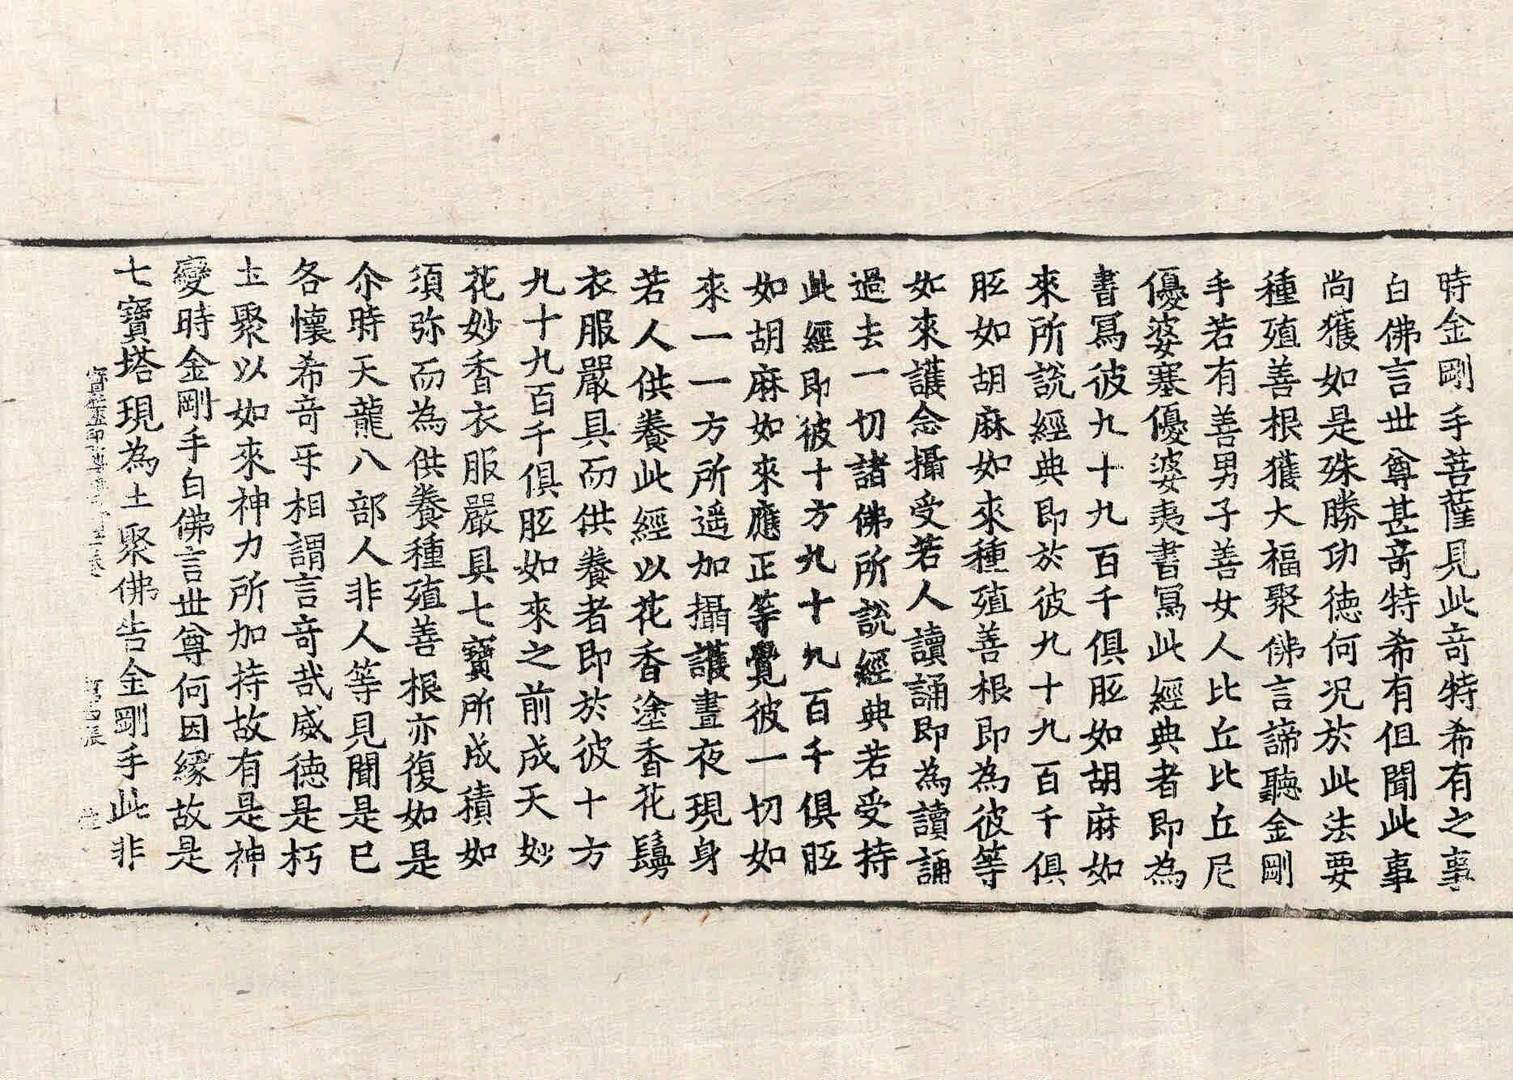 時金剛手菩薩見此奇特希有之事
白佛言世尊甚奇特希有但聞此事
尚獲如是殊勝功德何况於此法要
種殖善根獲大福聚佛言諦聽金剛
手若有善男子善女人比丘比丘尼
優婆塞優婆夷書冩此經典者即為
書冩彼九十九百千俱胝如胡麻如
來所說經典即於彼九十九百千俱
胝如胡麻如來種殖善根即為彼等
如來護念攝受若人讀誦即為讀誦
過去一切諸佛所說經典若受持
此經即彼十方九十九百千俱胝
如胡麻如來應正等覺彼一切如
來一一方所遥加攝護晝夜現身
若人供養此經以花香塗香花鬘
衣服嚴具而供養者即於彼十方
九十九百千俱胝如來之前成天妙
花妙香衣服嚴具七寶所成積如
須弥而為供養種殖善根亦復如是
尒時天龍八部人非人等見聞是已
各懷希奇㸦相謂言奇哉威德是朽
土聚以如來神力所加持故有是神
變時金剛手白佛言世尊何因緣故是
七寶塔現為土聚佛告金剛手此非